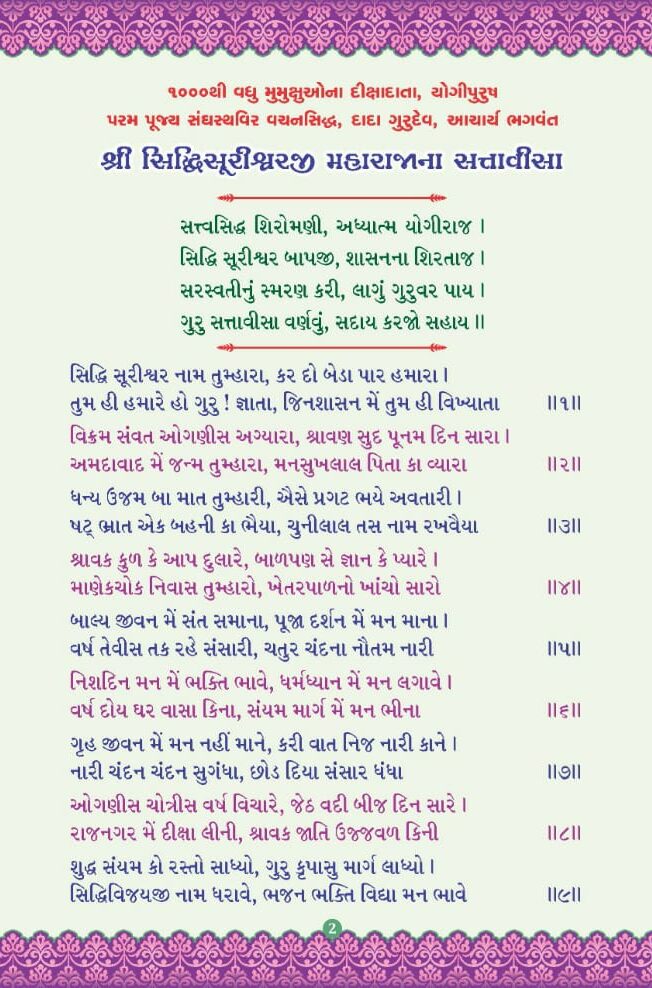 ૧૦૦૦થી વધુ મુમુક્ષુઓના દીક્ષાદાતા, યોગીપુરુષ
પરમ પૂજ્ય સંઘસ્થવિર વચનસિદ્ધ, દાદા ગુરુદેવ, આચાર્ય ભગવંત
શ્રી સિદ્ધિસૂરીશ્વરજી મહારાજાના સત્તાવીસા
સત્ત્વસિદ્ધ શિરોમણી, અધ્યાત્મ યોગીરાજ ।
સિદ્ધિ સૂરીશ્વર બાપજી, શાસનના શિરતાજ ।
સરસ્વતીનું સ્મરણ કરી, લાગું ગુરુવર પાય ।
ગુરુ સત્તાવીસા વર્ણવું, સદાય કરજો સહાય ॥
સિદ્ધિ સૂરીશ્વર નામ તુમ્હારા, કર દો બેડા પાર હમારા ।
તુમ હી હમારે હો ગુરુ ! જ્ઞાતા, જિનશાસન મેં તુમ હી વિખ્યાતા ॥૧॥
વિક્રમ સંવત ઓગણીસ અગ્યારા, શ્રાવણ સુદ પૂનમ દિન સારા ।
અમદાવાદ મેં જન્મ તુમ્હારા, મનસુખલાલ પિતા કા વ્યારા ॥૨॥
ધન્ય ઉજમ બા માત તુમ્હારી, ઐસે પ્રગટ ભયે અવતારી ।
ષટ્ ભ્રાત એક બહની કા ભૈયા, ચુનીલાલ તસ નામ રખવૈયા ॥૩॥
શ્રાવક કુળ કે આપ દુલારે, બાળપણ સે જ્ઞાન કે પ્યારે ।
માણેકચોક નિવાસ તુમ્હારો, ખેતરપાળનો ખાંચો સારો ॥૪॥
બાલ્ય જીવન મેં સંત સમાના, પૂજા દર્શન મેં મન માના ।
વર્ષ તેવીસ તક રહે સંસારી, ચતુર ચંદના નૌતમ નારી ॥૫॥
નિશદિન મન મેં ભક્તિ ભાવે, ધર્મધ્યાન મેં મન લગાવે ।
વર્ષ દોય ઘર વાસા કિના, સંયમ માર્ગ મેં મન ભીના ॥૬॥
ગૃહ જીવન મેં મન નહીં માને, કરી વાત નિજ નારી કાને ।
નારી ચંદન ચંદન સુગંધા, છોડ દિયા સંસાર ધંધા ॥૭॥
ઓગણીસ ચોત્રીસ વર્ષ વિચારે, જેઠ વદી બીજ દિન સારે ।
રાજનગર મેં દીક્ષા લીની, શ્રાવક જાતિ ઉજ્જવળ કિની ॥૮॥
શુદ્ધ સંયમ કો રસ્તો સાધ્યો, ગુરુ કૃપાસુ માર્ગ લાધ્યો ।
સિદ્ધિવિજયજી નામ ધરાવે, ભજન ભક્તિ વિદ્યા મન ભાવે ॥૯॥
2